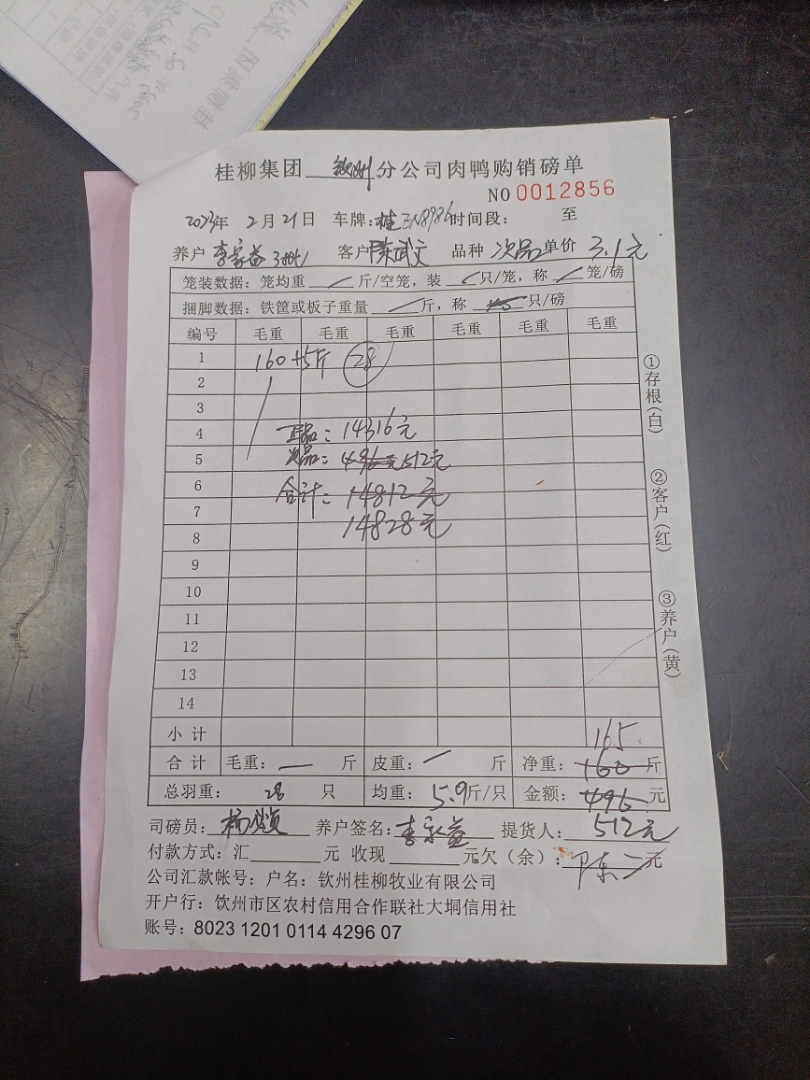 桂柳集团 钦州 分公司肉鸭购销磅单
NO 0012856
2023年 2月21日 车牌:桂 时间段: 至
养户 李家益 客户 陈武文 品种 次品 单价 3.1元
笼装数据:笼均重 斤/空笼,装 只/笼,称 笼/磅
捆脚数据:铁筐或板子重量 斤,称 只/磅
编号 毛重 毛重 毛重 毛重 毛重 毛重
1 160+5斤 28
2
3
4 正品:14316元
5 次品:496元 512元
6 合计:14812元
7
8 14828元
9
10
11
12
13
14
小计 165
合计 毛重: 斤 皮重: 斤 净重:160斤
总羽重: 28 只 均重:5.9斤/只 金额:496元
司磅员: 养户签名:李家益 提货人: 512元
付款方式:汇 元 收现 元欠(余): 元
公司汇款帐号:户名:钦州桂柳牧业有限公司
开户行:钦州市区农村信用合作联社大垌信用社
账号:8023 1201 0114 4296 07
①存根(白)
②客户(红)
③养户(黄)